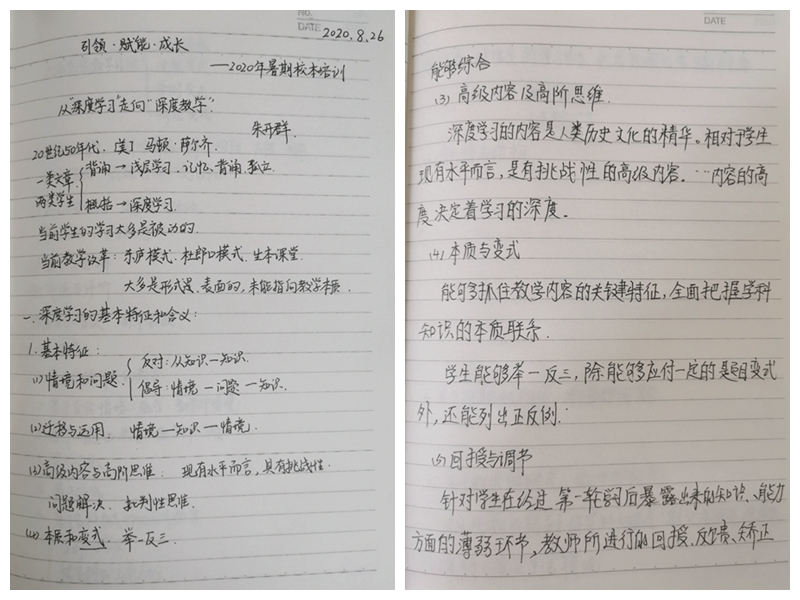 No.
DATE 2020.8.26
引领·赋能·成长
——2020年暑期校本培训
从“深度学习”走向“深度教学”
朱开群.
20世纪50年代.〔美〕马顿·萨尔齐.
一类文章 背诵→浅层学习.记忆,背诵,孤立.
两类学生 概括→深度学习.
当前学生的学习大多是被动的.
当前教学改革:东庐模式.杜郎口模式.生本课堂.
大多是形式ogg、表面的,未能指向教学本质.
一.深度学习的基本特征和含义:
1.基本特征:
反对:从知识—知识.
(1)情境和问题
倡导:情境—问题—知识.
(2)迁移与运用. 情境—知识—情境.
(3)高级内容与高阶思维: 现有水平而言,具有挑战性.
问题解决. 批判性思维.
(4)本质和变式. 举一反三.
DATE
能够综合
(3)高级内容及高阶思维.
深度学习的内容是人类历史文化的精华。相对于学生
现有水平而言,是有挑战性的高级内容.…内容的高
度决定着学习的深度.
(4)本质与变式
能够抓住教学内容的关键特征,全面把握学科
知识的本质联系.
学生能够举一反三,除能够应付一定的题目变式
外,还能列出正反例.
(5)回授与调节
针对学生在经过第一轮学习后暴露出来的知识、能力
方面的薄弱环节,教师所进行的回授、反馈、矫正